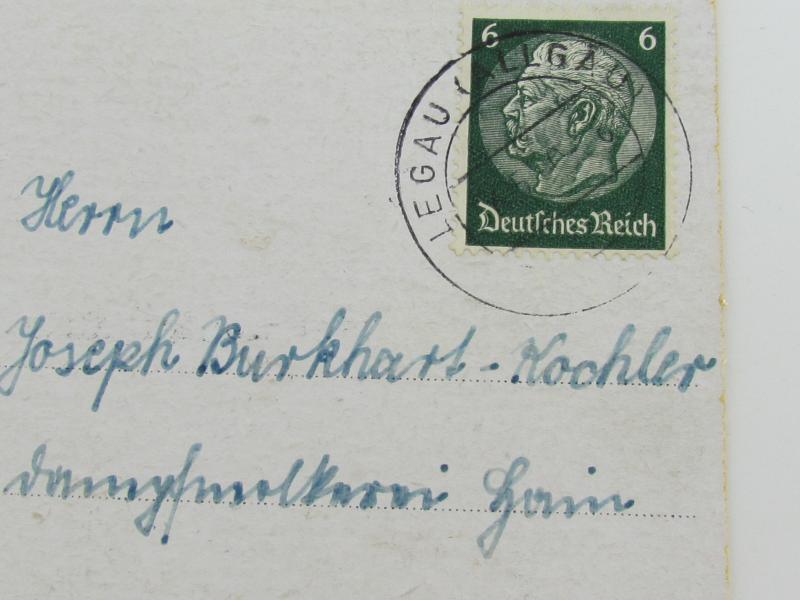 6 6
LEGAU (ALLGÄU)
Deutsches Reich
Herrn
Joseph Burkhart-Kochler
Dampfmolkerei Hain